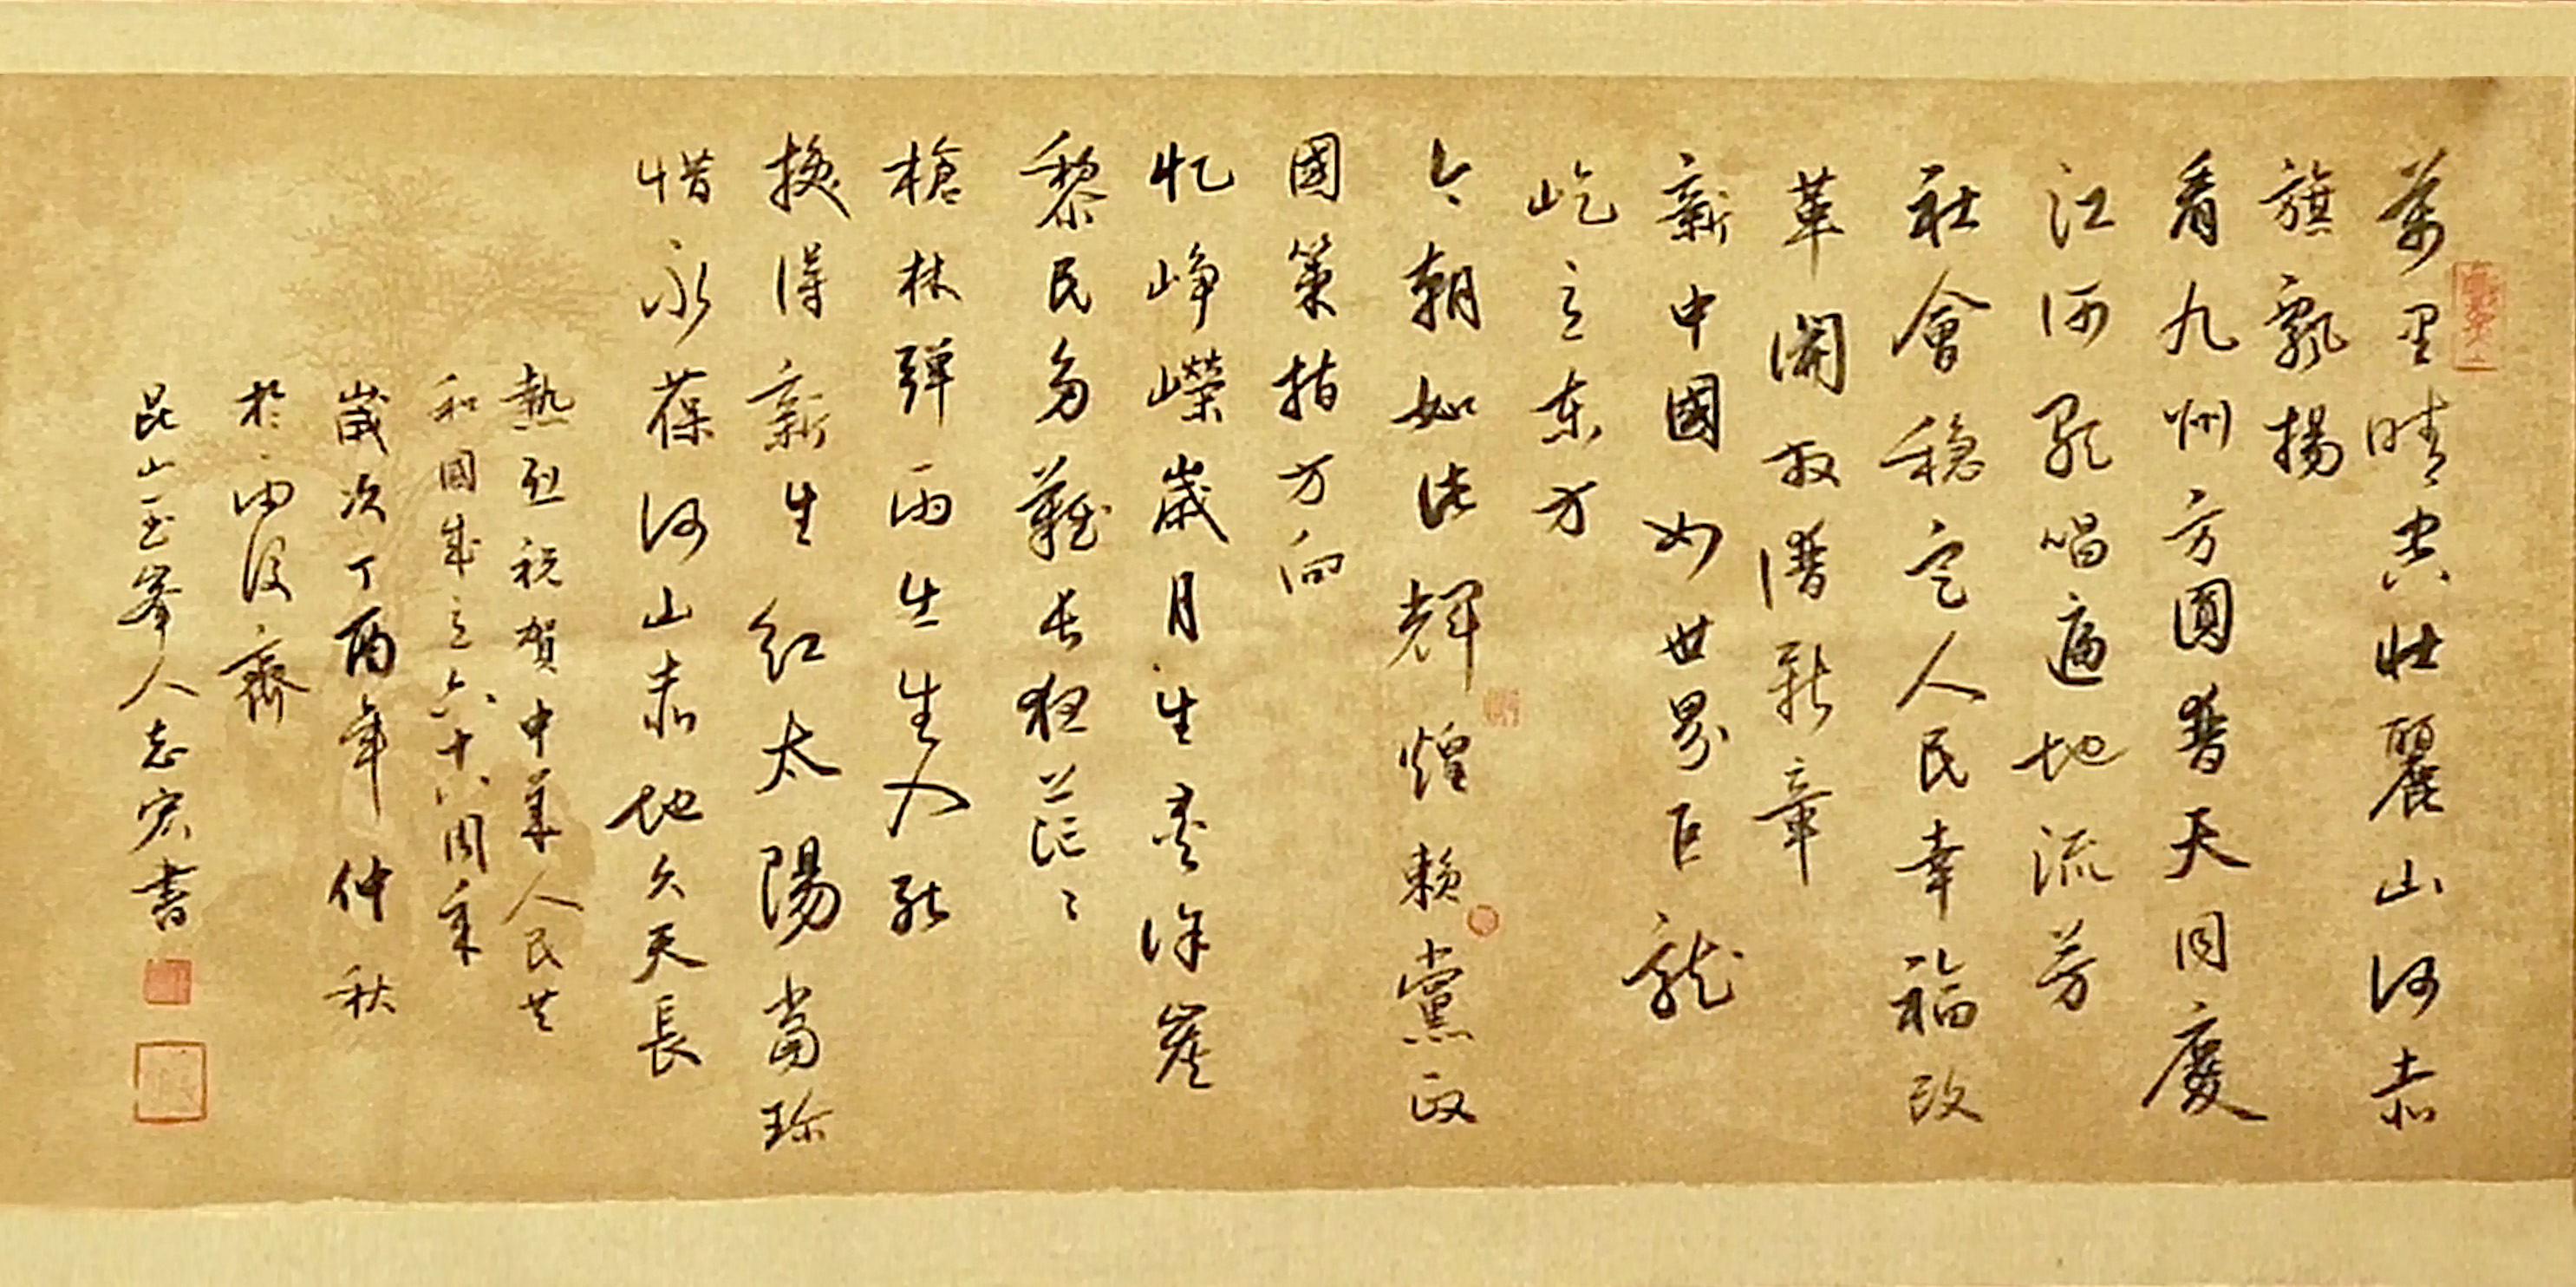 萬里晴空壯麗山河赤
旗飄揚
看九州方圓普天同慶
江河歌唱遍地流芳
社會穩定人民幸福改
革開放譜新章
新中國如世界巨龍
屹立東方
今朝如此輝煌賴黨政
國策指方向
忆崢嶸歲月生靈塗炭
黎民多難長夜茫々
槍林彈雨出生入死
換得新生紅太陽當珍
惜永葆河山赤地久天長
熱烈祝賀中華人民共
和國成立六十八周年
歲次丁酉年仲秋
於雨後齋
昆山玉峯人志宏書